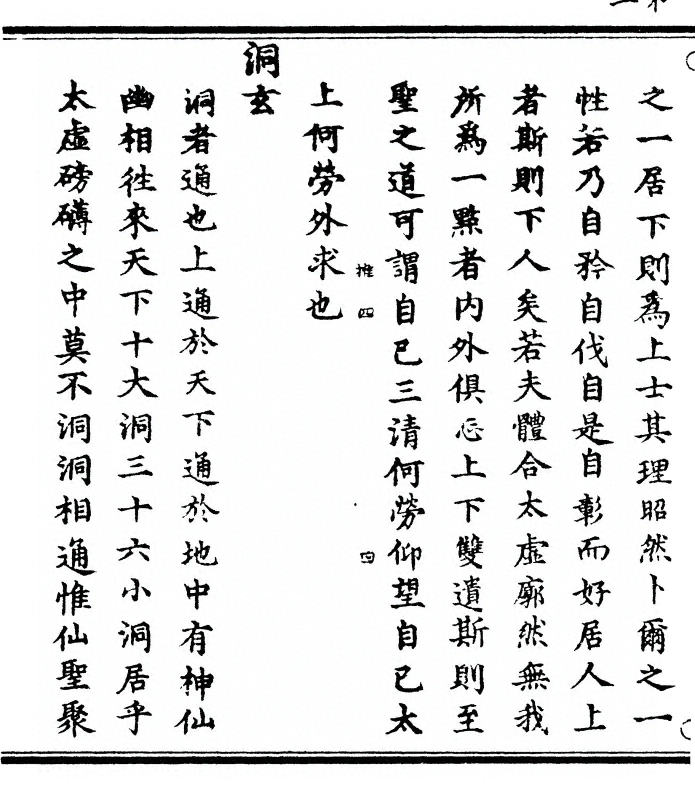 之一居下則爲上士其理昭然卜爾之一
性若乃自矜自伐自是自彰而好居人上
者斯則下人矣若夫體合太虛廓然無我
所爲一點者内外俱忘上下雙遣斯則至
聖之道可謂自已三清何勞仰望自已太
推四 四
上何勞外求也
洞玄
洞者通也上通於天下通於地中有神仙
幽相徃來天下十大洞三十六小洞居乎
太虛磅礴之中莫不洞洞相通惟仙聖聚